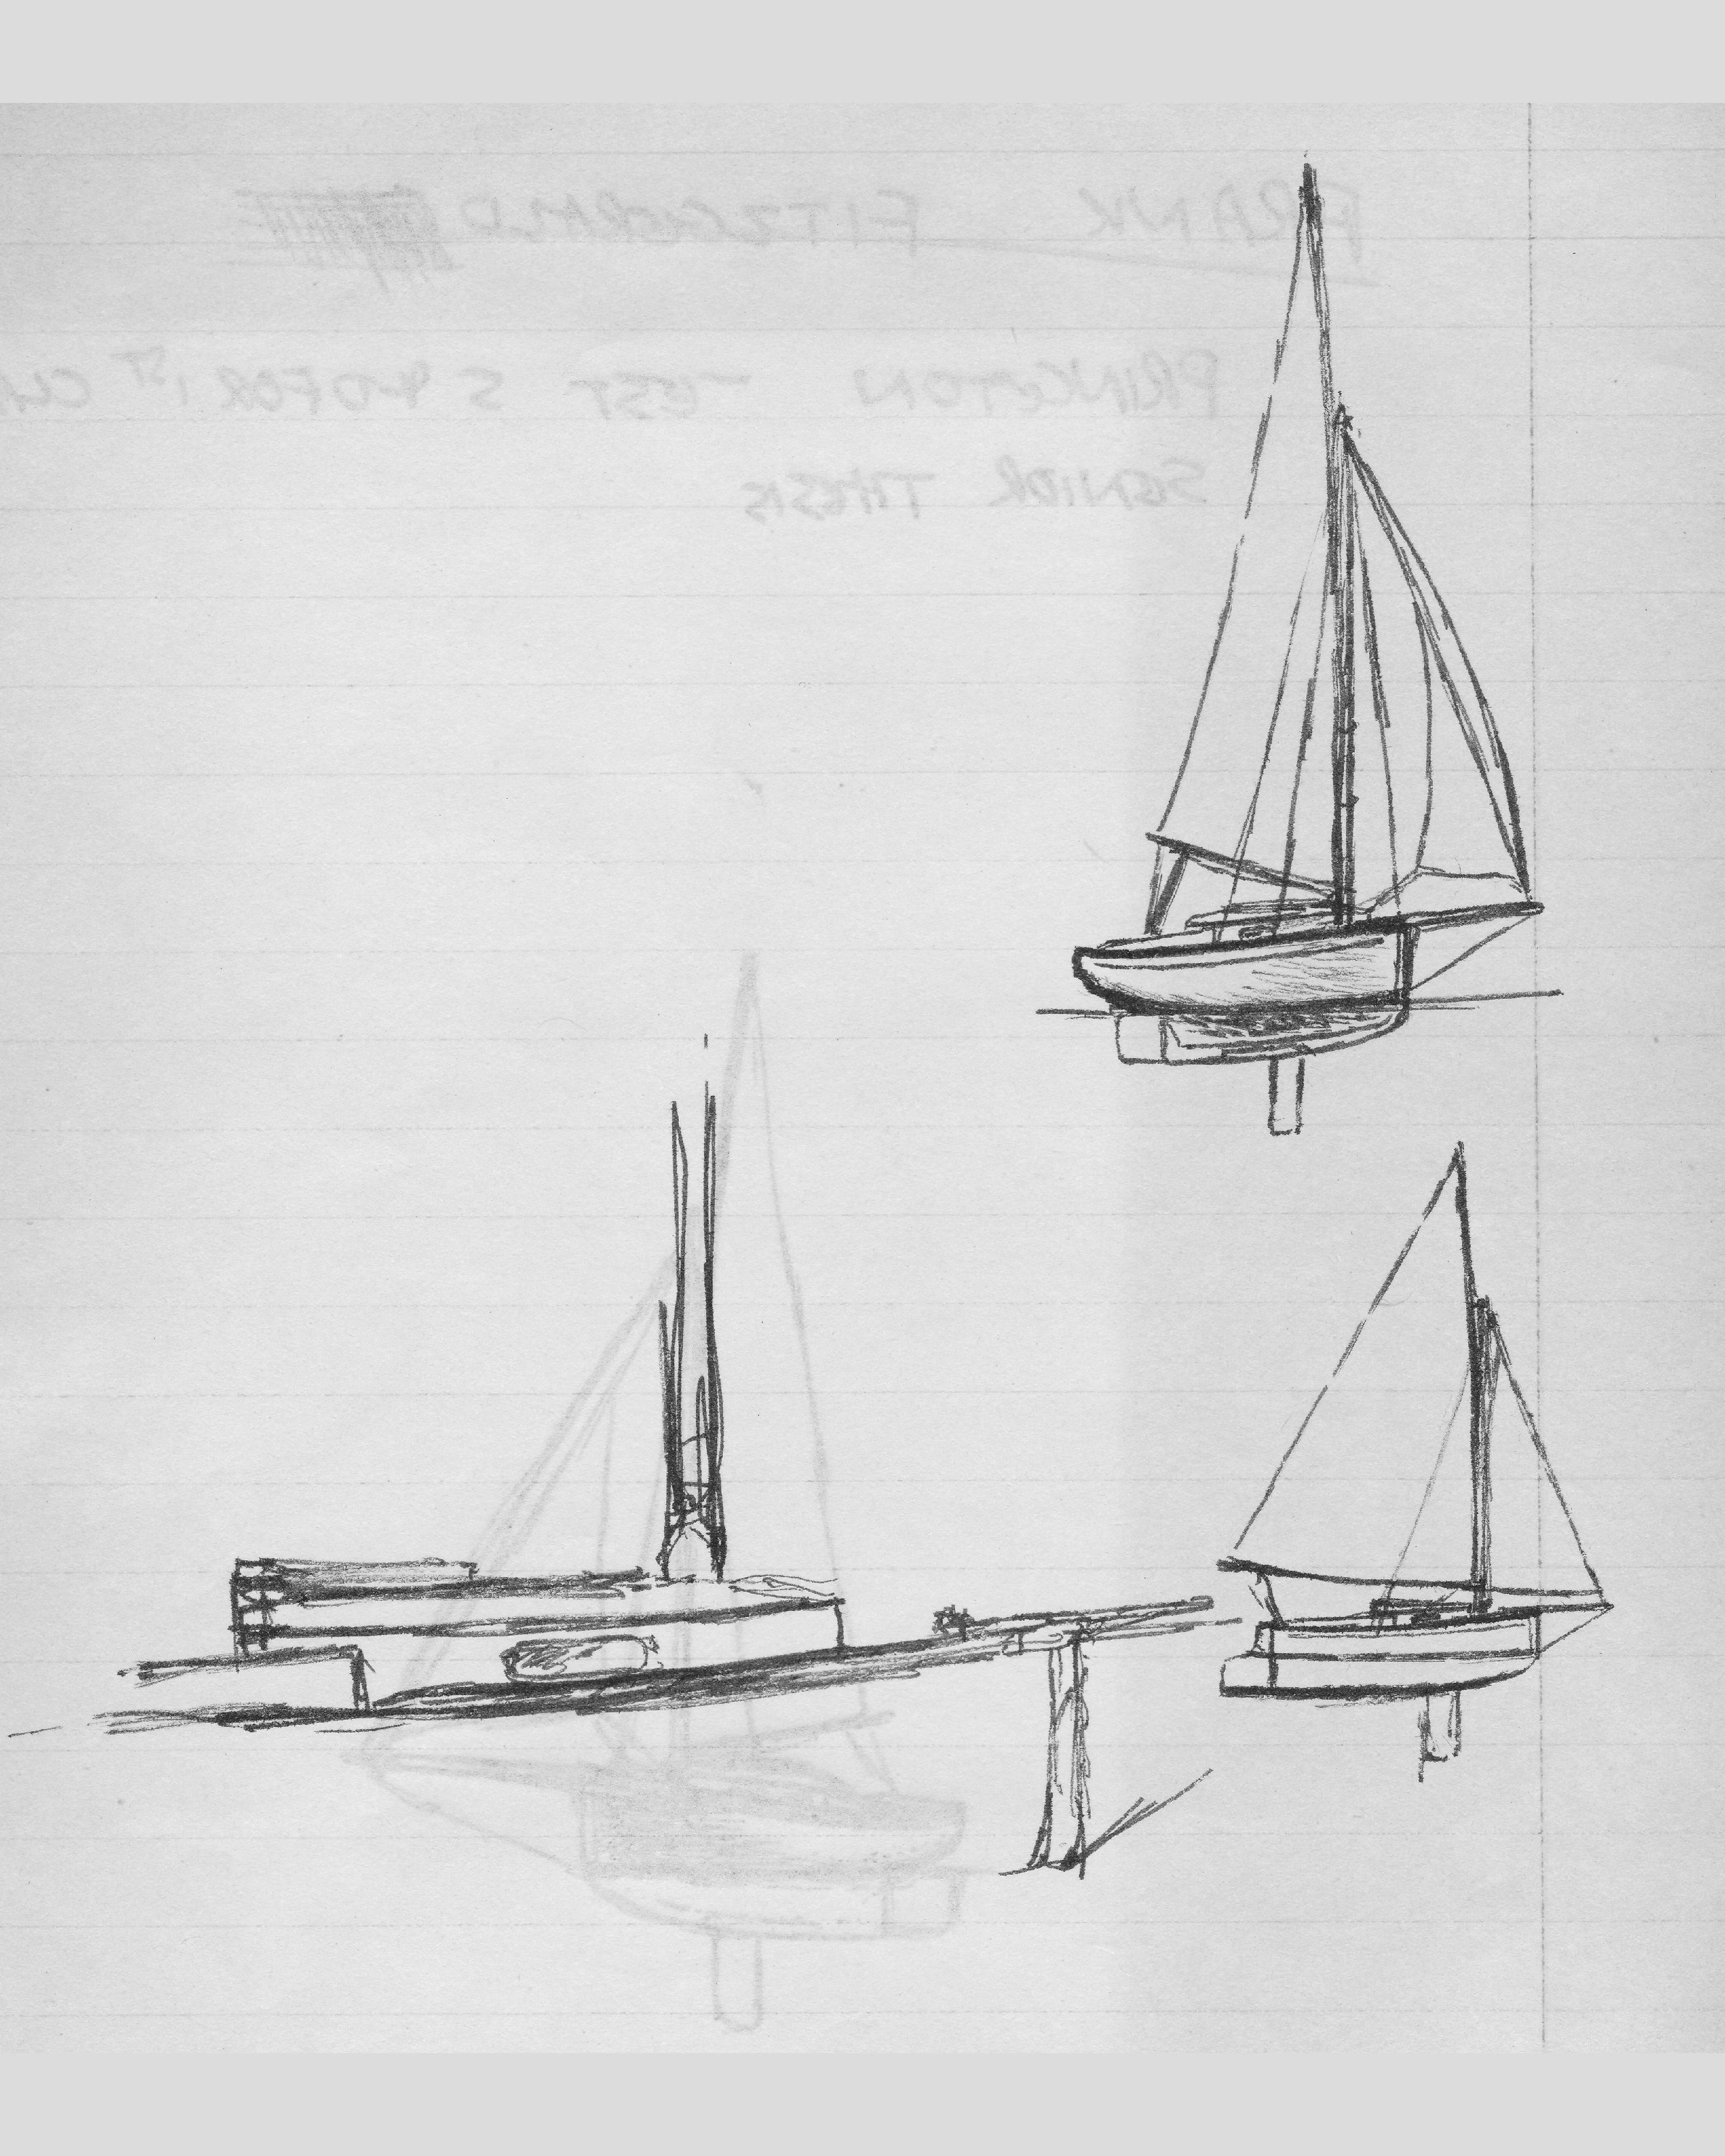 FRANK FITZGERALD
PRINCETON TEST S 40 FOR 1ST CLA
SENIOR THESIS